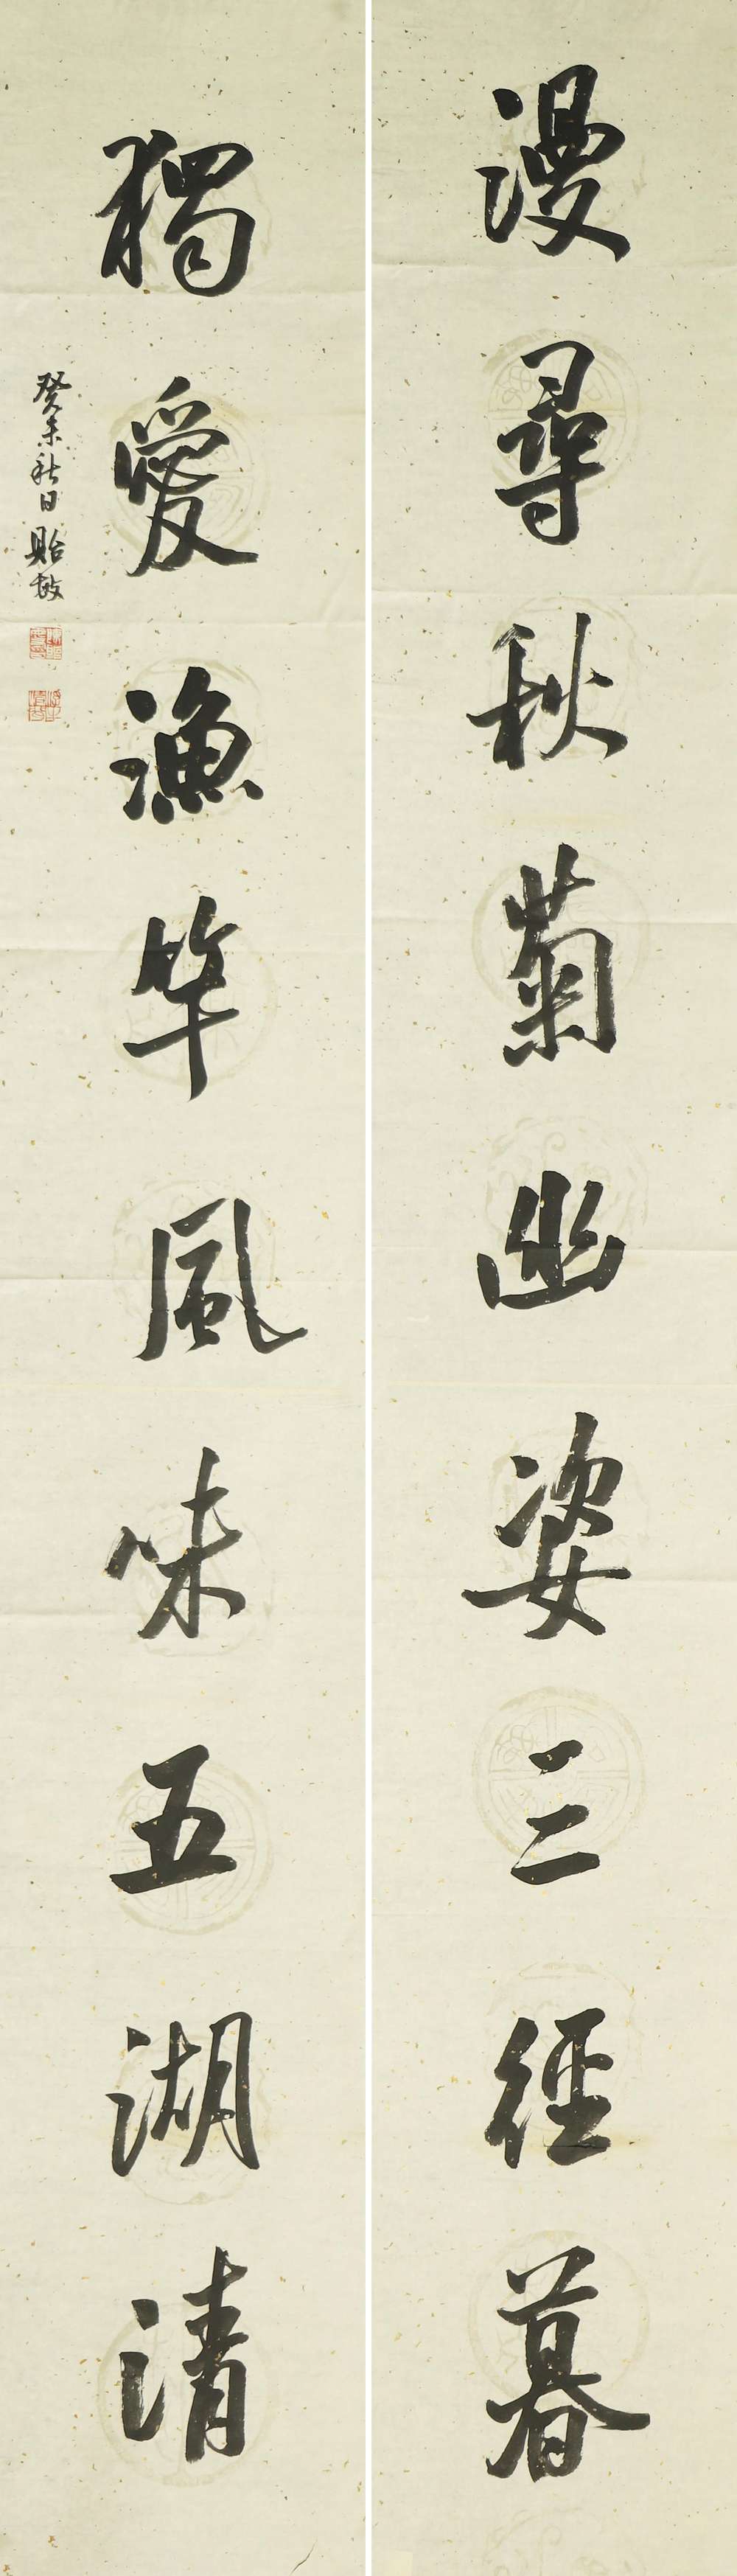 漫尋秋菊幽姿三徑暮
獨愛漁竿風味五湖清
癸未秋日貽敏